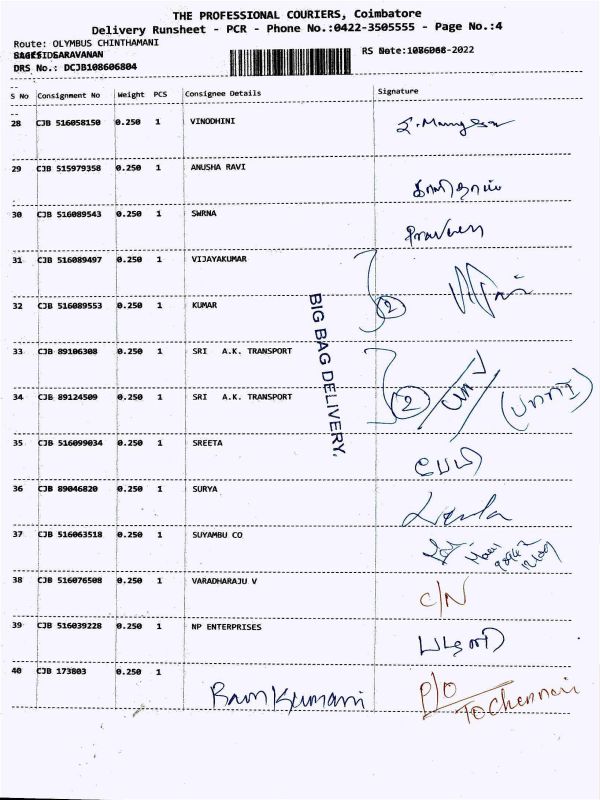 THE PROFESSIONAL COURIERS, Coimbatore
Delivery Runsheet - PCR - Phone No.:0422-3505555 - Page No.:4
Route: OLYMBUS CHINTHAMANI
SARAVANAN
RS Date:
-2022
DRS No.: DCJB108606804
S No Consignment No Weight PCS Consignee Details Signature
28 CJB 516058150 0.250 1 VINODHINI
29 CJB 515979358 1 0.250 1 ANUSHA RAVI
30 CJB 516089543 0.250 1 SWRNA
31 CJB 516089497 0.250 1 VIJAYAKUMAR
32 CJB 516089553 0.250 1 KUMAR
2
BIG BAG DELIVERY.
33 CJB 89106308 0.250 1 SRI A.K. TRANSPORT
34 CJB 89124509 0.250 1 SRI A.K. TRANSPORT
2
35 CJB 516099034 0.250 1 SREETA
36 CJB 89046820 0.250 1 SURYA
37 CJB 516063518 0.250 1 SUYAMBU CO
38 CJB 516076508 0.250 1 VARADHARAJU V
C/N
39 CJB 516039228 0.250 1 NP ENTERPRISES
40 CJB 173803 0.250 1
Ramkumari
P/O
TO Chennai